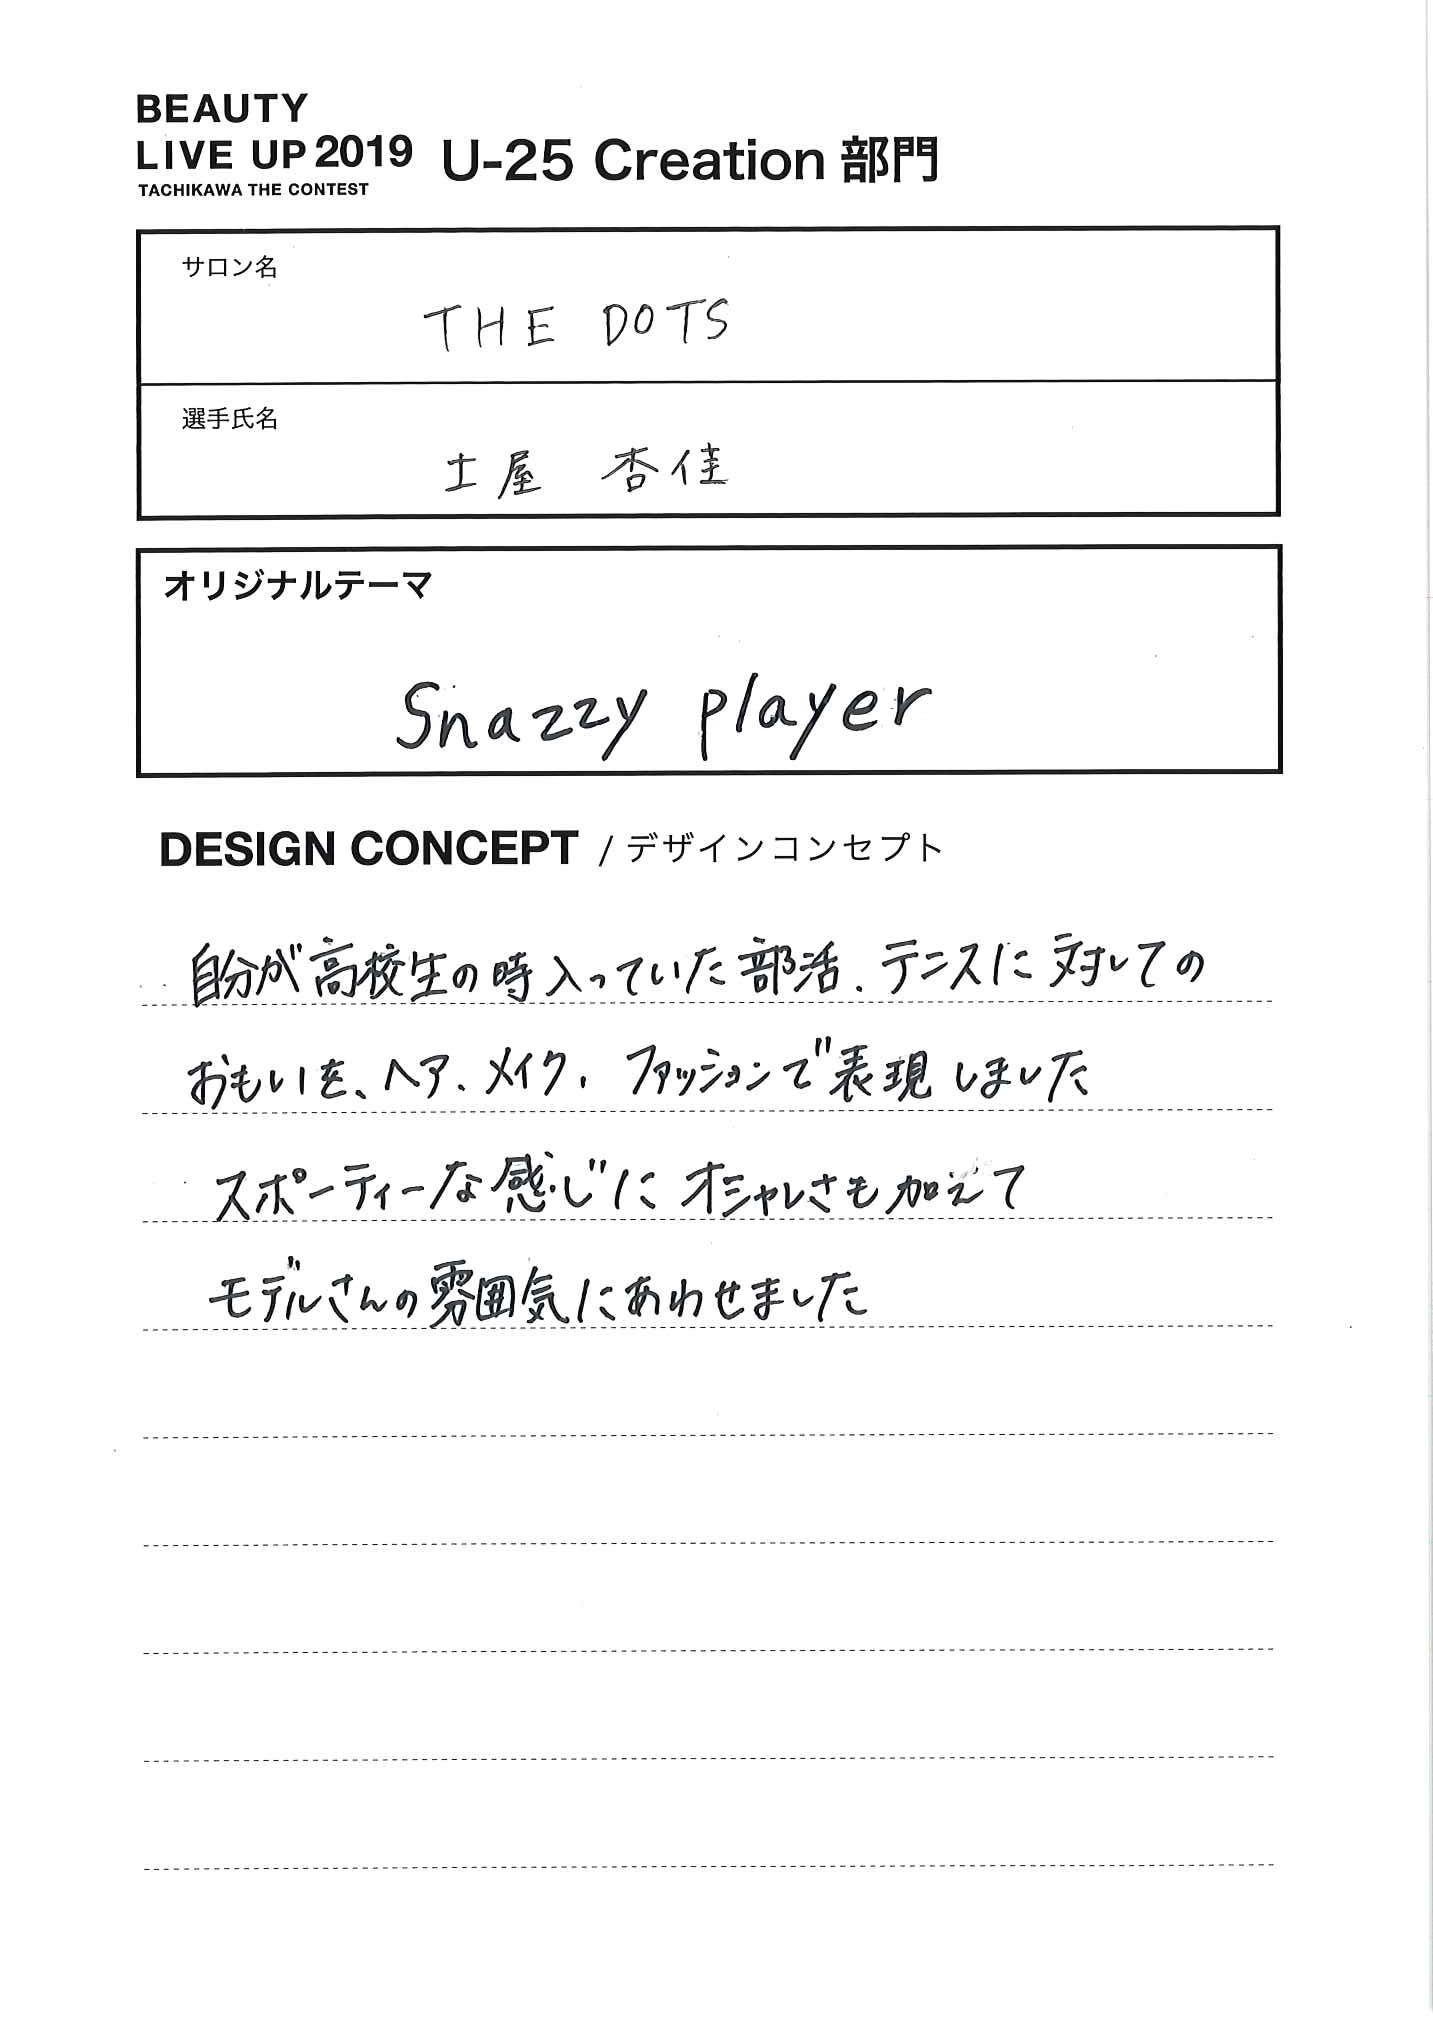 BEAUTY
LIVE UP 2019 U-25 Creation 部門
TACHIKAWA THE CONTEST
サロン名
THE DOTS
選手氏名
土屋 杏佳
オリジナルテーマ
Snazzy player
DESIGN CONCEPT / デザインコンセプト
自分が高校生の時入っていた部活、テニスに対しての
おもいを、ヘア、メイク、ファッションで表現しました
スポーティーな感じにオシャレさも加えて
モデルさんの雰囲気にあわせました